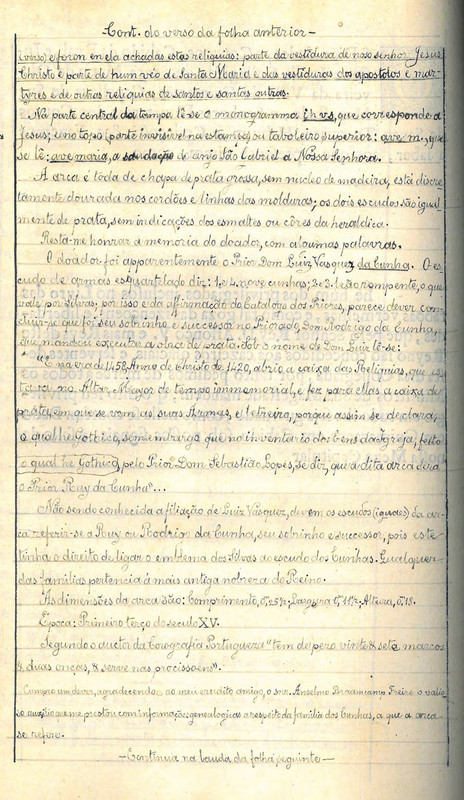 —Cont. do verso da folha anterior—
(verso) e foron en ela achadas estas reliquias: parte da vestidura de noso senhor Jesus
Christo e parte de hum véo de Santa Maria e das vestiduras dos apostolos e mar-
tyres e de outras reliquias de santos e santas outras.
Na parte central da tampa lê-se o monogramma ihvs, que corresponde a
Jesus; e no topo (parte invisivel na estampa) ou taboleiro superior: ave m., que
se lê: ave maria, a saudação do anjo São Gabriel a Nossa Senhora.
A arca é tôda de chapa de prata grossa, sem nucleo de madeira, está discre-
tamente dourada nos cordões e linhas das molduras; os dois escudos são igual-
mente de prata, sem indicações dos esmaltes ou côres da heraldica.
Resta-me honrar a memoria do doador, com algumas palavras.
O doador foi apparentemente o Prior Dom Luiz Vasquez da Cunha. O es-
cudo de armas esquartelado diz: 1. e 4. nove cunhas; 2. e 3. leão rompente, o que
vale por Silvas, por isso e da affirmação do Catalogo dos Priores, parece dever con-
cluir-se que foi seu sobrinho e successor no Priorado, Dom Rodrigo da Cunha,
que mandou executar a obra de prata. Sob o nome de Dom Luiz lê-se:
"E na era de 1458, Anno de Christo de 1420, abrio a caixa das Reliquias, que es-
tava no Altar Mayor de tempo immemorial, e fez para ellas a caixa de
prata, em que se vem as suas Armas, e letreiro, porque assim se declara,
o qual he Gothico, sem embargo que no inventario dos bens da Igreja, feito
o qual he Gothico, pelo Prior Dom Sebastião Lopes, se diz, que a dita arca dera
o Prior Ruy da Cunha"...
Não sendo conhecida a filiação de Luiz Vásquez, devem os escudos (iguaes) da ar-
ca referir-se a Ruy ou Rodrigo da Cunha, seu sobrinho e successor, pois este
tinha o direito de ligar o emblema dos Silvas ao escudo dos Cunhas. Qualquer
das familias pertencia á mais antiga nobreza do Reino.
As dimensões da arca são: Comprimento, 0,25½; Largura 0,11½; Altura, 0,18.
Época: Primeiro terço do seculo XV.
Segundo o auctor da Corografia Portugueza "tem de pezo vinte & sete marcos
& duas onças, & serve nas procissoens".
Cumpro um dever, agradecendo ao meu erudito amigo, o snr. Anselmo Braamcamp Freire o valio-
so auxilio que me prestou com informações genealogicas a respeito da familia dos Cunhas, a que a arca
se refere.
—Continúa na lauda da folha seguinte—